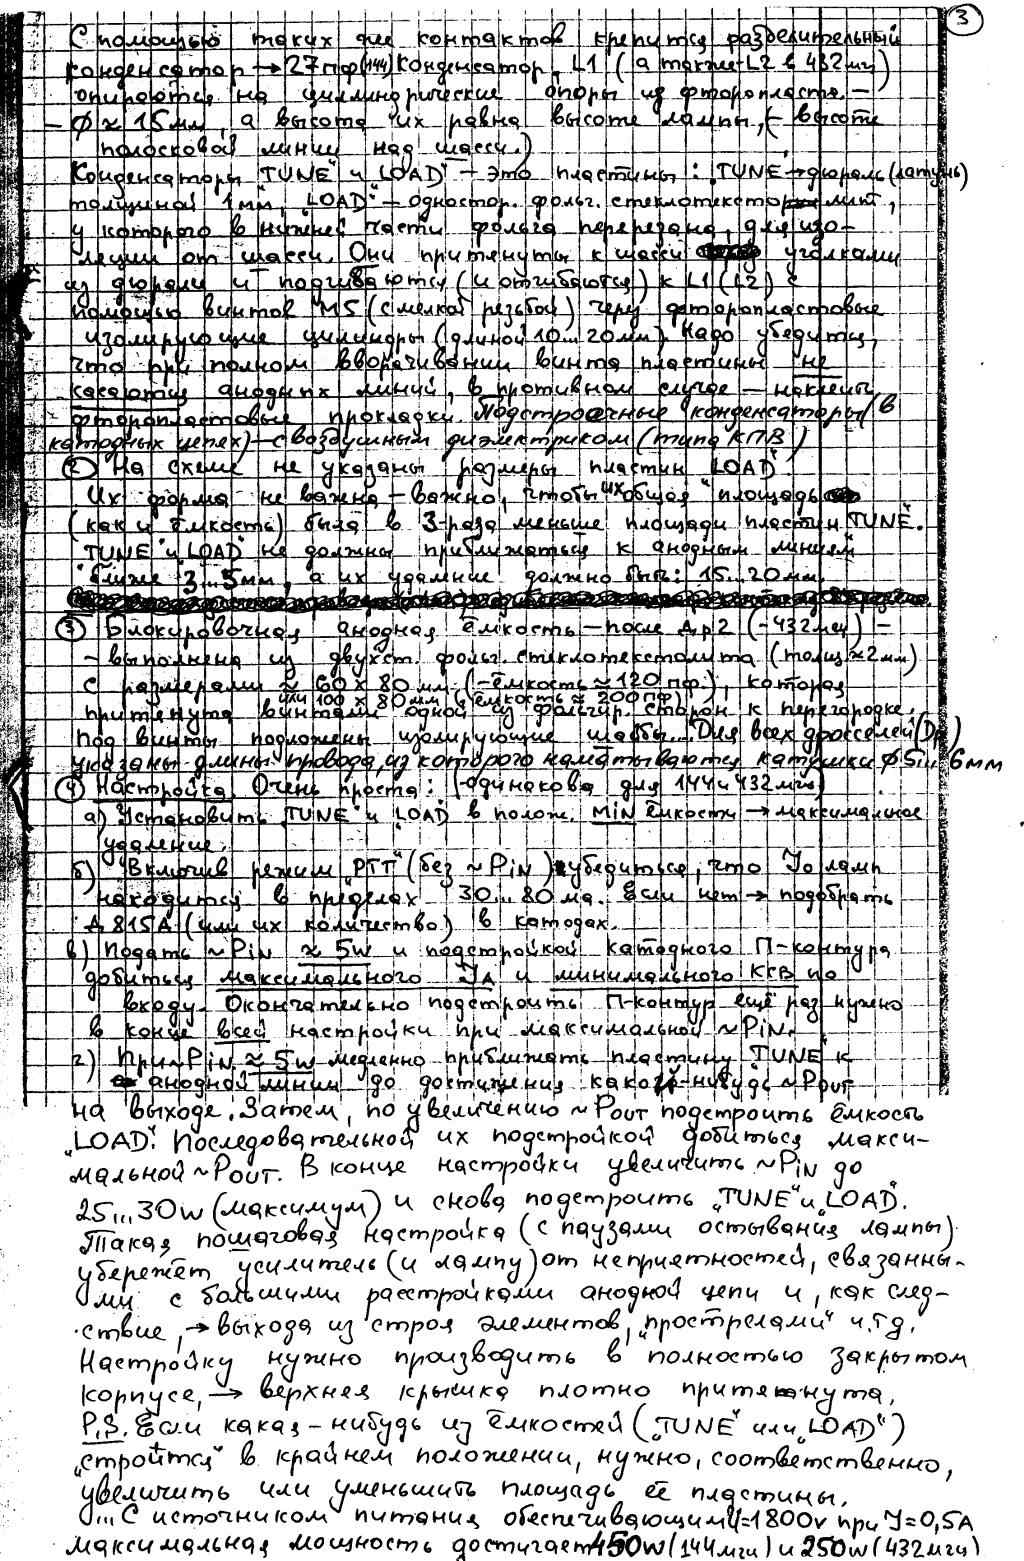 3
С помощью таких же контактов крепится разделительный
конденсатор → 27пф(144) Конденсатор, L1 (а также L2 в 432мгц)
опираются на цилиндрические опоры из фторопласта –
– Ø ≈ 15мм, а высота их равна высоте лампы, (– высоте
полосковой линии над шасси.)
Конденсаторы "TUNE" и "LOAD" – это пластины: "TUNE" → дюраль (латунь)
толщиной 1мм, "LOAD" – одностор. фольг. стеклотекстолит,
у которого в нижней части фольга перерезана, для изо-
ляции от шасси. Они притянуты к шасси уголками
из дюрали и подгибаются (и отгибаются) к L1 (L2) с
помощью винтов М5 (с мелкой резьбой) через фторопластовые
изолирующие цилиндры (длиной 10...20мм). Надо убедится,
что при полном вворачивании винта пластины не
касаются анодных линий, в противном случае – наклеить
фторопластовые прокладки. Подстроечные конденсаторы (в
катодных цепях) – с воздушным диэлектриком (типа КПВ)
② На схеме не указаны размеры пластин "LOAD"
Их форма не важна – важно, чтобы их общая площадь
(как и ёмкость) была в 3-раза меньше площади пластин "TUNE".
"TUNE" и "LOAD" не должны приближаться к анодным линиям
ближе 3...5мм, а их удаление должно быть: 15...20мм.
③ Блокировочная анодная ёмкость – после Др2 (-432мгц) –
– выполнена из двухст. фольг. стеклотекстолита (толщ ≈ 2мм)
с размерами ≈ 60 х 80 мм (– ёмкость ≈ 120 пф.), которая
или 100 х 80 мм (ёмкость ≈ 200 пф)
притянута винтами одной из фольгир. сторон к перегородке.
Под винты подложены изолирующие шайбы... Для всех дросселей (Др)
указаны длины провода, из которого наматываются катушки Ø 5...6мм
④ Настройка. Очень проста: (– одинакова для 144 и 432мгц)
а) Установить "TUNE" и "LOAD" в полож. MiN ёмкости → максимальное
удаление.
б) Включив режим "PTT" (без ~PiN) убедиться, что Jo ламп
находится в пределах 30...80 ма. Если нет → подобрать
Д815А (или их количество) в катодах.
в) Подать ~PiN ≈ 5w и подстройкой катодного П-контура
добиться максимального JA и минимального КСВ по
входу. Окончательно подстроить П-контур ещё раз нужно
в конце всей настройки при максимальной ~PiN.
г) При ~PiN ≈ 5w медленно приближать пластину "TUNE" к
анодной линии до достижения какой-нибудь ~Pout
на выходе. Затем, по увеличению ~Pout подстроить ёмкость
"LOAD". Последовательной их подстройкой добиться макси-
мальной ~Pout. В конце настройки увеличить ~PiN до
25...30w (максимум) и снова подстроить "TUNE" и "LOAD".
Такая пошаговая настройка (с паузами остывания лампы)
убережёт усилитель (и лампу) от неприятностей, связанны-
ми с большими расстройками анодной цепи и, как след-
ствие, → выхода из строя элементов, "прострелами" и.т.д.
Настройку нужно производить в полностью закрытом
корпусе, → верхняя крышка плотно притянута.
P.S. Если какая-нибудь из ёмкостей ("TUNE" или "LOAD")
"строится" в крайнем положении, нужно, соответственно,
увеличить или уменьшить площадь её пластины.
... С источником питания обеспечивающим U=1800v при J=0,5А
максимальная мощность достигает 450w (144мгц) и 250w (432мгц)